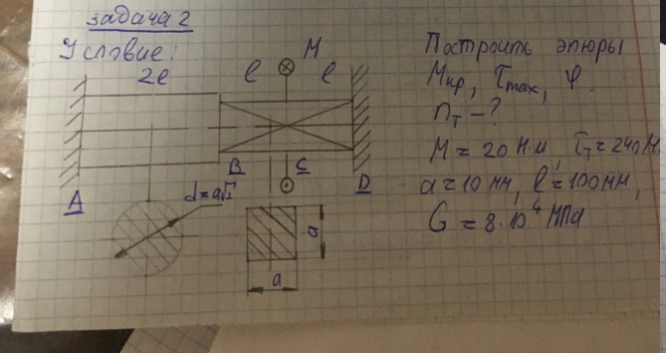 задача 2
Условие:
2l
l
M
l
A
B
C
D
d=a√2
a
a
Построить эпюры
Мкр, τmax, φ.
nт - ?
M = 20 Н·м, τт = 240 М
a = 10 мм, l = 100 мм,
G = 8·10⁴ МПа